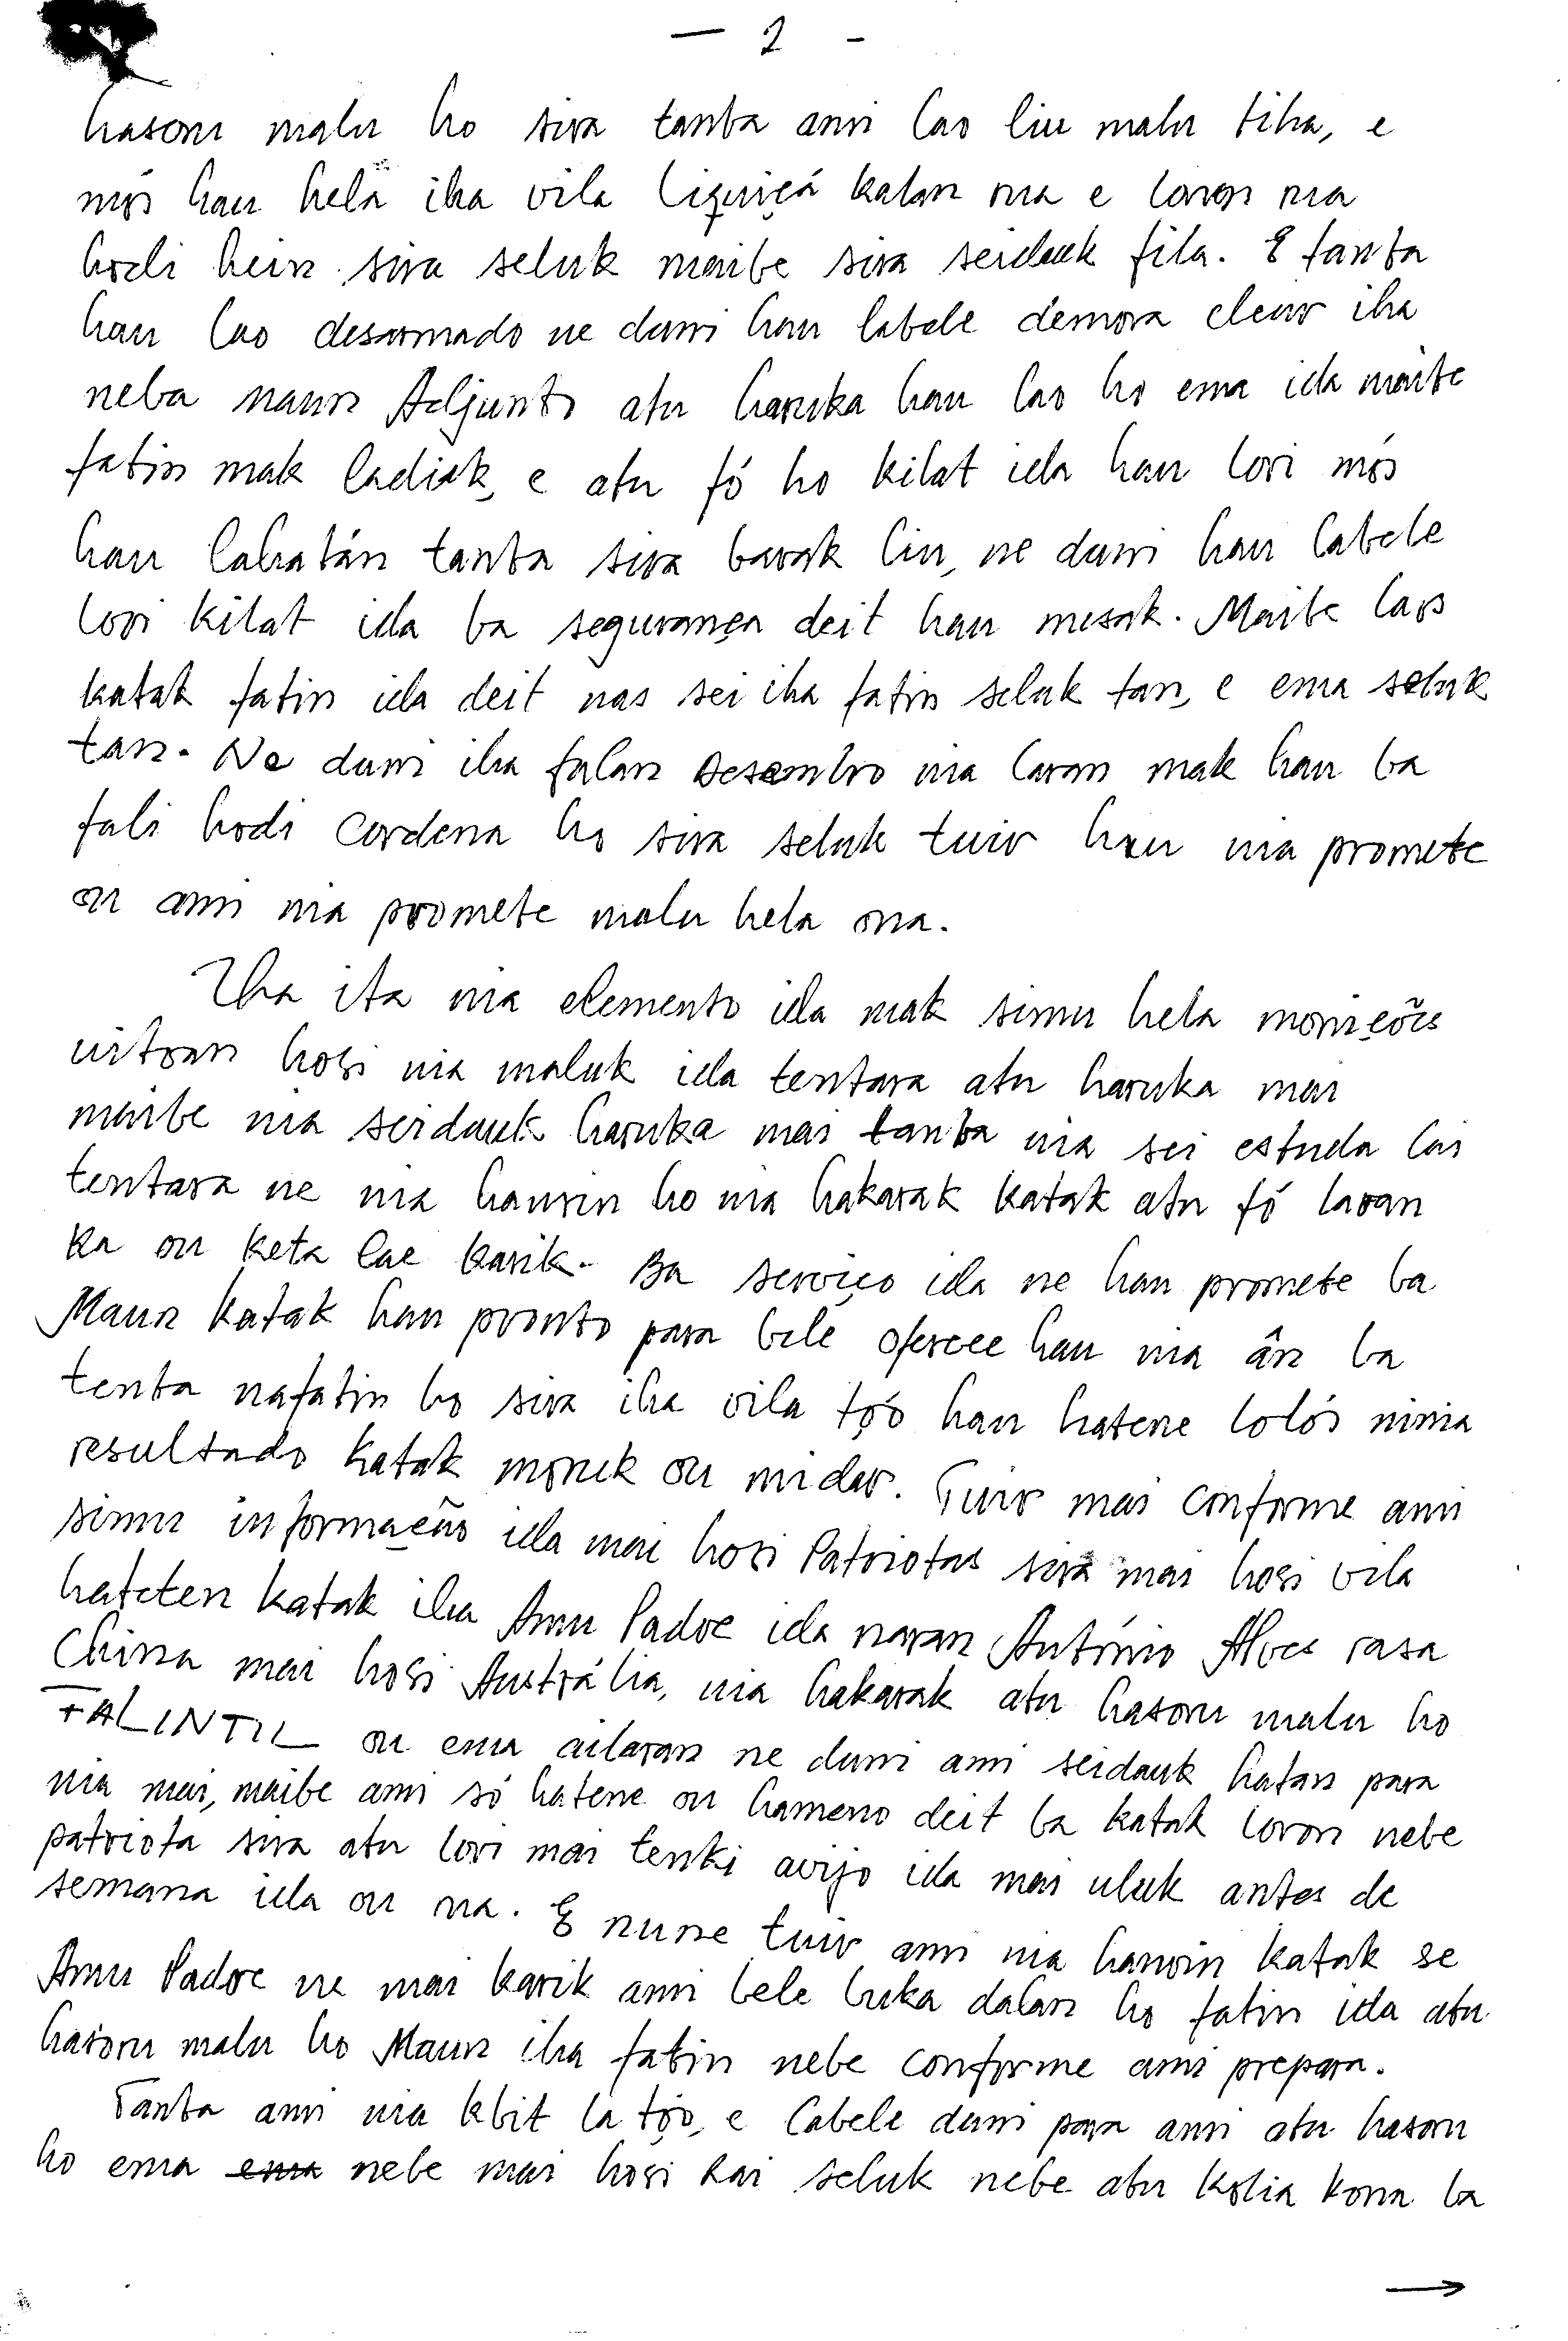 — 2 -
hasoru malu ho sira tanba ami lao liu malu tiha, e
mós hau hela iha vila Liquiçá kalan rua e loron rua
hodi hein sira seluk maibe sira seidauk fila. E tanba
hau lao desarmado ne duni hau labele demora cleur iha
neba maun Adjunto atu haruka hau lao ho ema ida maibe
fatin mak ladiak, e atu fó ho kilat ida hau lori mós
hau lahatán tanba sira barak liu, ne duni hau labele
lori kilat ida ba segurança deit hau mesak. Maibe laos
katak fatin ida deit nas sei iha fatin seluk tan, e ema seluk
tan. Ne duni iha fulan Desembro nia laran mak hau ba
fali hodi cordena ho sira seluk tuir hau nia promete
ou ami nia promete malu hela ona.
Iha ita nia elemento ida mak simu hela monições
uitoan hosi nia maluk ida tentara atu haruka mai
maibe nia seidauk haruka mai tanba nia sei estuda lai
tentara ne nia hanrin ho nia hakarak katak atu fó laran
ka ou keta lae karik. Ba serviço ida ne hau promete ba
Maun katak hau pronto para bele oferece hau nia ân ba
tenta nafatin ho sira iha vila tóo hau hatene lolós ninia
resultado katak moruk ou midar. Tuir mai conforme ami
simu informação ida mai hosi Patriotas sira mai hosi vila
hateten katak iha Amu Padre ida naran António Alves rasa
China mai hosi Austrália, nia hakarak atu hasoru malu ho
FALINTIL ou ema ailaran ne duni ami seidauk hatan para
nia mai, maibe ami só hatene ou hameno deit ba katak loron nebe
patriota sira atu lori mai tenki avijo ida mai uluk antes de
semana ida ou rua. E nune tuir ami nia hanoin katak se
Amu Padre ne mai karik ami bele buka dalan ho fatin ida atu
hasoru malu ho Maun iha fatin nebe conforme ami prepara.
Tanba ami nia kbit la tóo, e labele duni para ami atu hasoru
ho ema ema nebe mai hosi Rai seluk nebe atu kolia kona ba
→